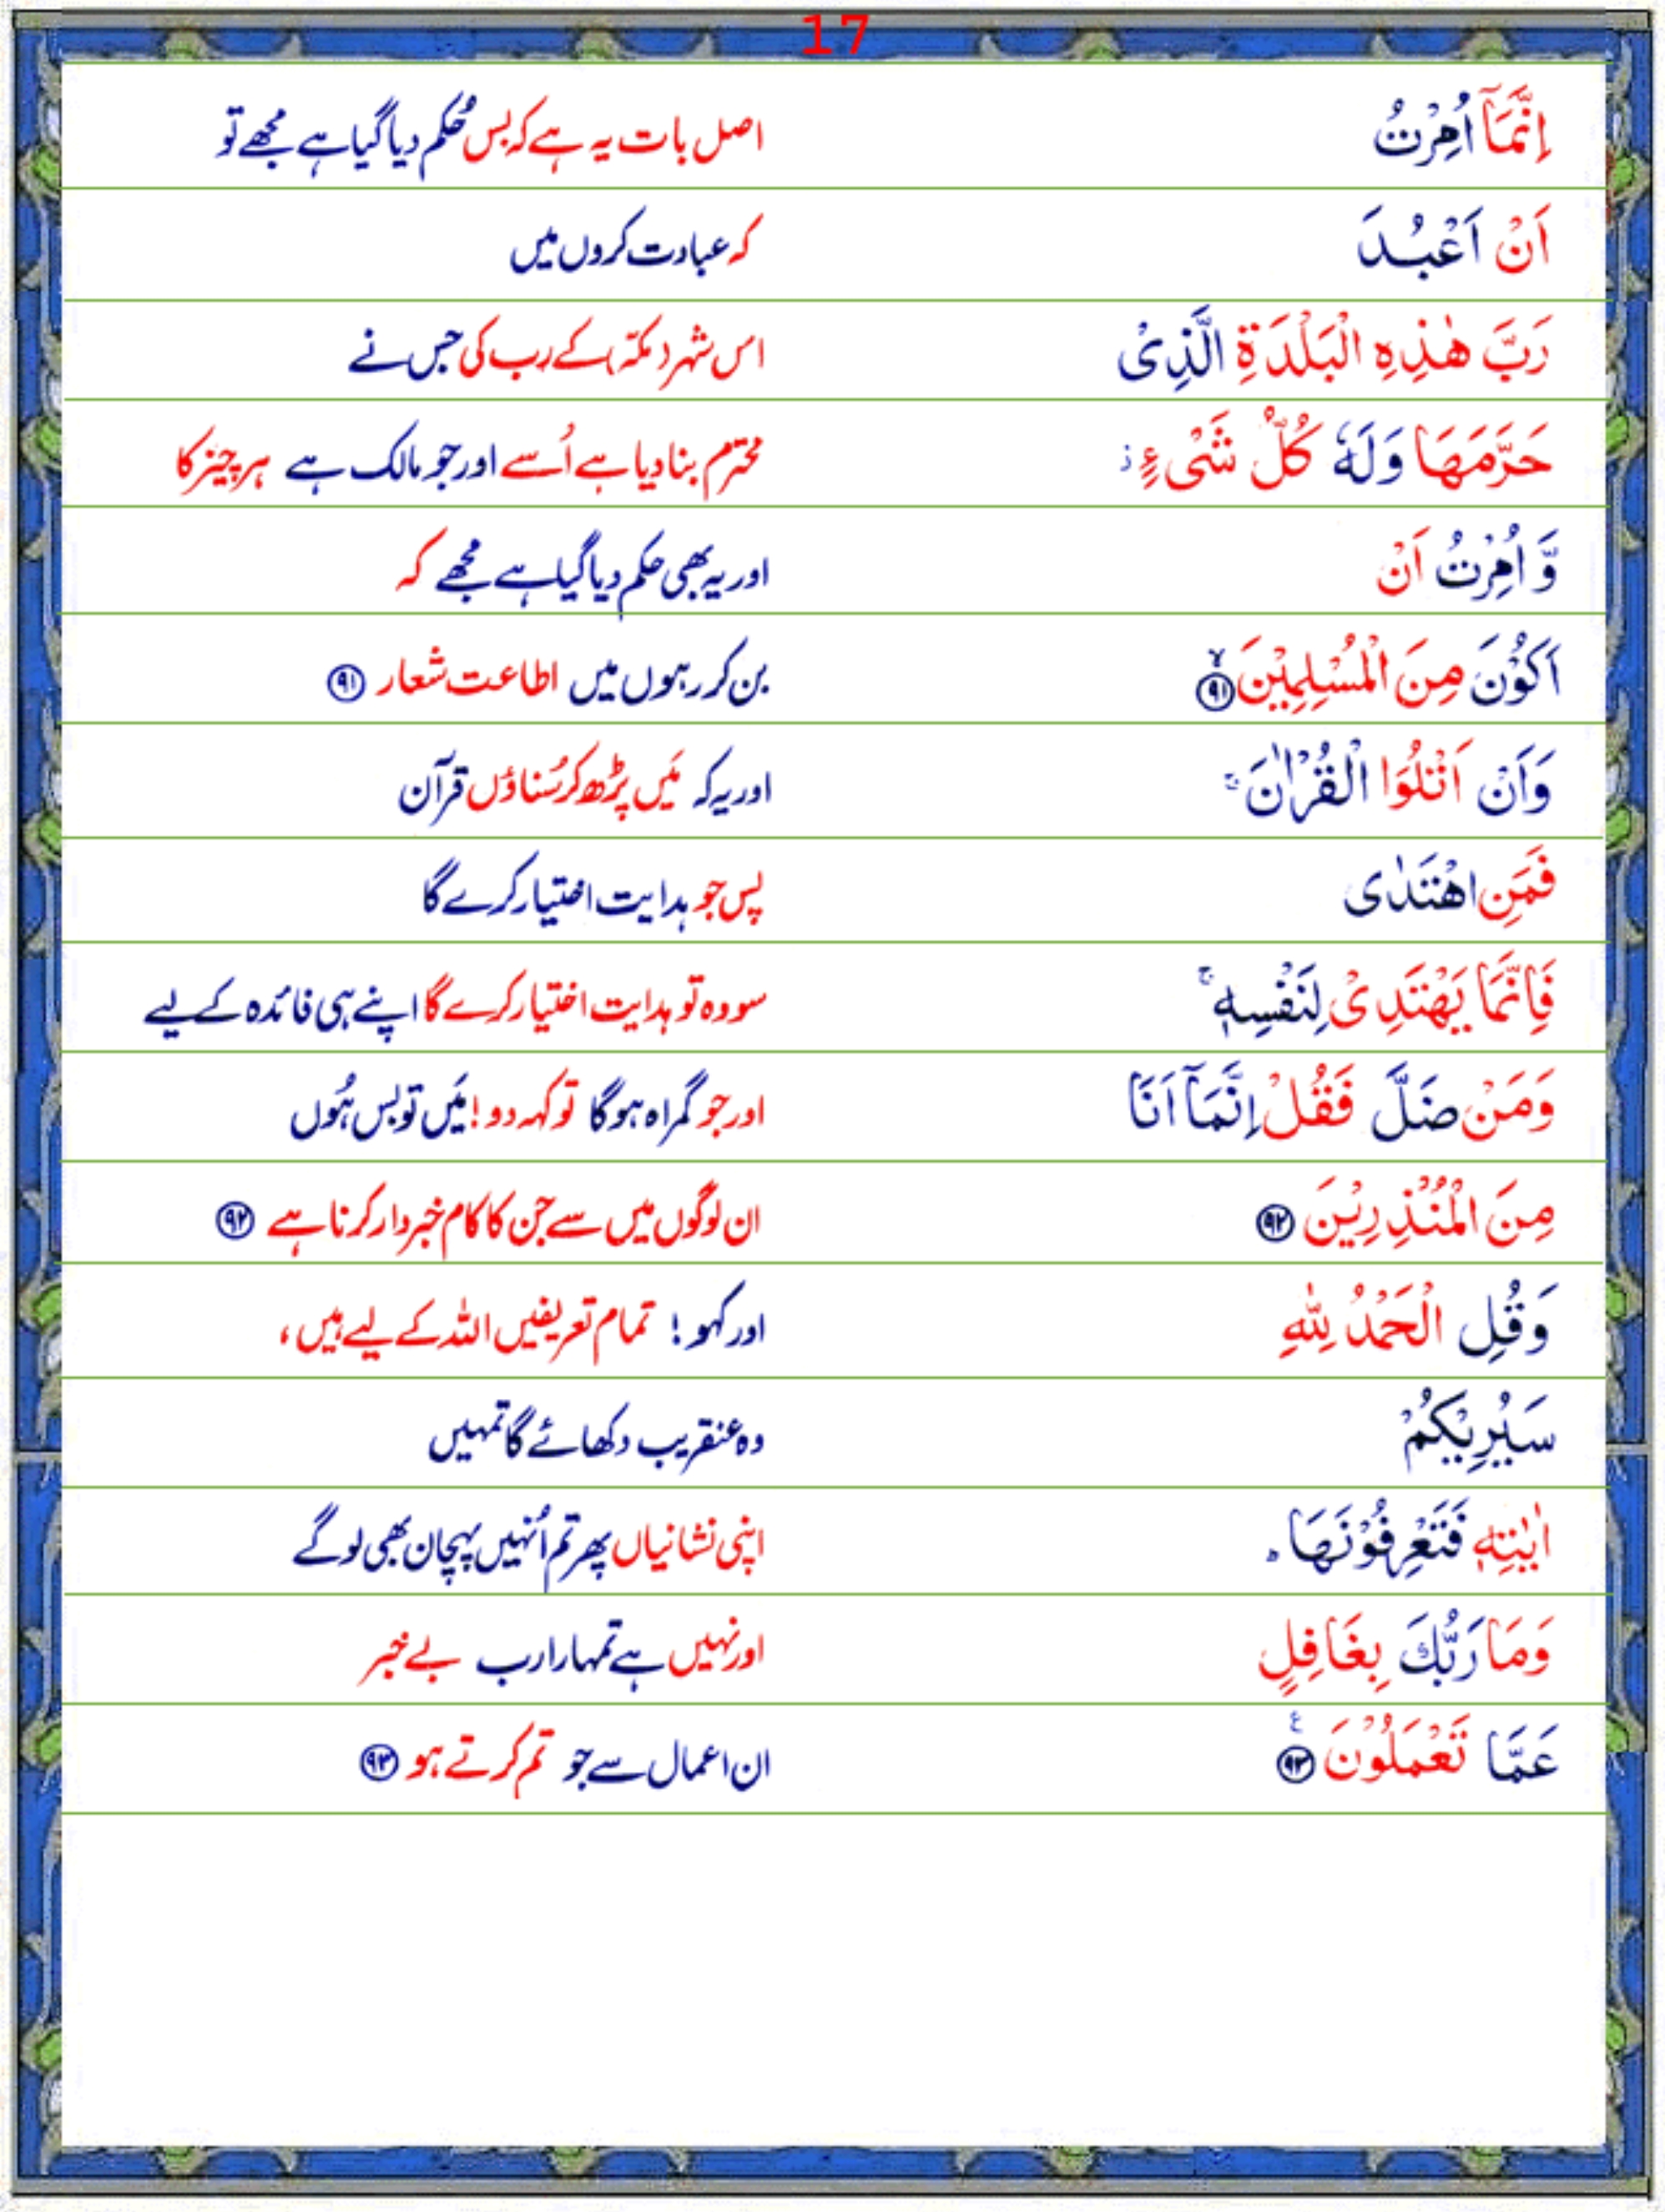 17
اِنَّمَاۤ اُمِرْتُ اصل بات یہ ہے کہ بس حُکم دیا گیا ہے مجھے تو
اَنْ اَعْبُدَ کہ عبادت کروں میں
رَبَّ هٰذِهِ الْبَلْدَةِ الَّذِیْ اس شہر (مکّہ) کے رب کی جس نے
حَرَّمَهَا وَلَهٗ كُلُّ شَیْءٍ ؗ محترم بنا دیا ہے اُسے اور جو مالک ہے ہر چیز کا
وَّ اُمِرْتُ اَنْ اور یہ بھی حکم دیا گیا ہے مجھے کہ
اَكُوْنَ مِنَ الْمُسْلِمِیْنَ ۙ ۹۱ بن کر رہوں میں اطاعت شعار ۹۱
وَاَنْ اَتْلُوَا الْقُرْاٰنَ ۚ اور یہ کہ مَیں پڑھ کر سُناؤں قرآن
فَمَنِ اهْتَدٰی پس جو ہدایت اختیار کرے گا
فَاِنَّمَا یَهْتَدِیْ لِنَفْسِهٖ ۚ سو وہ تو ہدایت اختیار کرے گا اپنے ہی فائدہ کے لیے
وَمَنْ ضَلَّ فَقُلْ اِنَّمَاۤ اَنَا اور جو گمراہ ہوگا تو کہہ دو! مَیں تو بس ہُوں
مِنَ الْمُنْذِرِیْنَ ۹۲ ان لوگوں میں سے جن کا کام خبردار کرنا ہے ۹۲
وَقُلِ الْحَمْدُ لِلّٰهِ اور کہو! تمام تعریفیں اللہ کے لیے ہیں،
سَیُرِیْكُمْ وہ عنقریب دکھائے گا تمہیں
اٰیٰتِهٖ فَتَعْرِفُوْنَهَا ؕ اپنی نشانیاں پھر تم اُنہیں پہچان بھی لوگے
وَمَا رَبُّكَ بِغَافِلٍ اور نہیں ہے تمہارا رب بے خبر
عَمَّا تَعْمَلُوْنَ ۹۳ ع ان اعمال سے جو تم کرتے ہو ۹۳